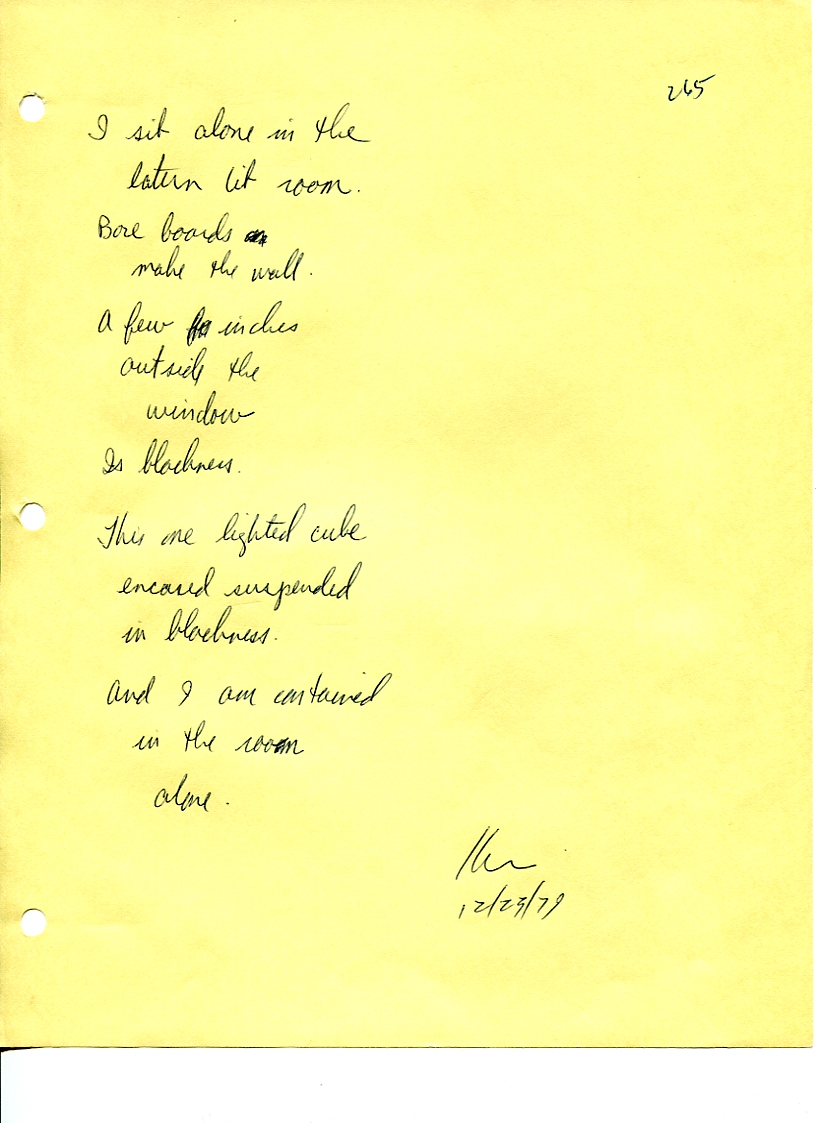 265
I sit alone in the
latern lit room.
Bare boards
make the wall.
A few inches
outside the
window
Is blackness.
This one lighted cube
encased suspended
in blackness.
And I am contained
in the room
alone.
12/23/79